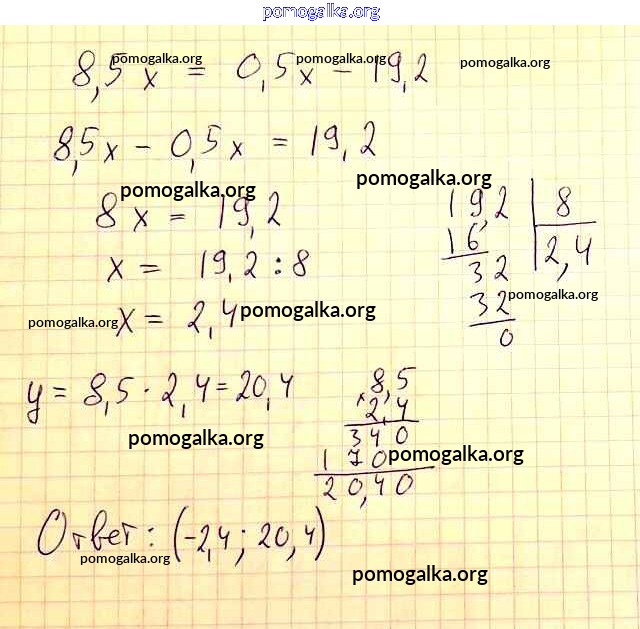 pomogalka.org
8,5x = 0,5x - 19,2
pomogalka.org pomogalka.org pomogalka.org
8,5x - 0,5x = 19,2
pomogalka.org pomogalka.org
8x = 19,2
x = 19,2 : 8
x = 2,4
pomogalka.org pomogalka.org
19,2 | 8
16 | 2,4
32
pomogalka.org
32
0
y = 8,5 · 2,4 = 20,4
pomogalka.org
8,5
× 2,4
340
170
pomogalka.org
20,40
Ответ: (-2,4; 20,4)
pomogalka.org
pomogalka.org